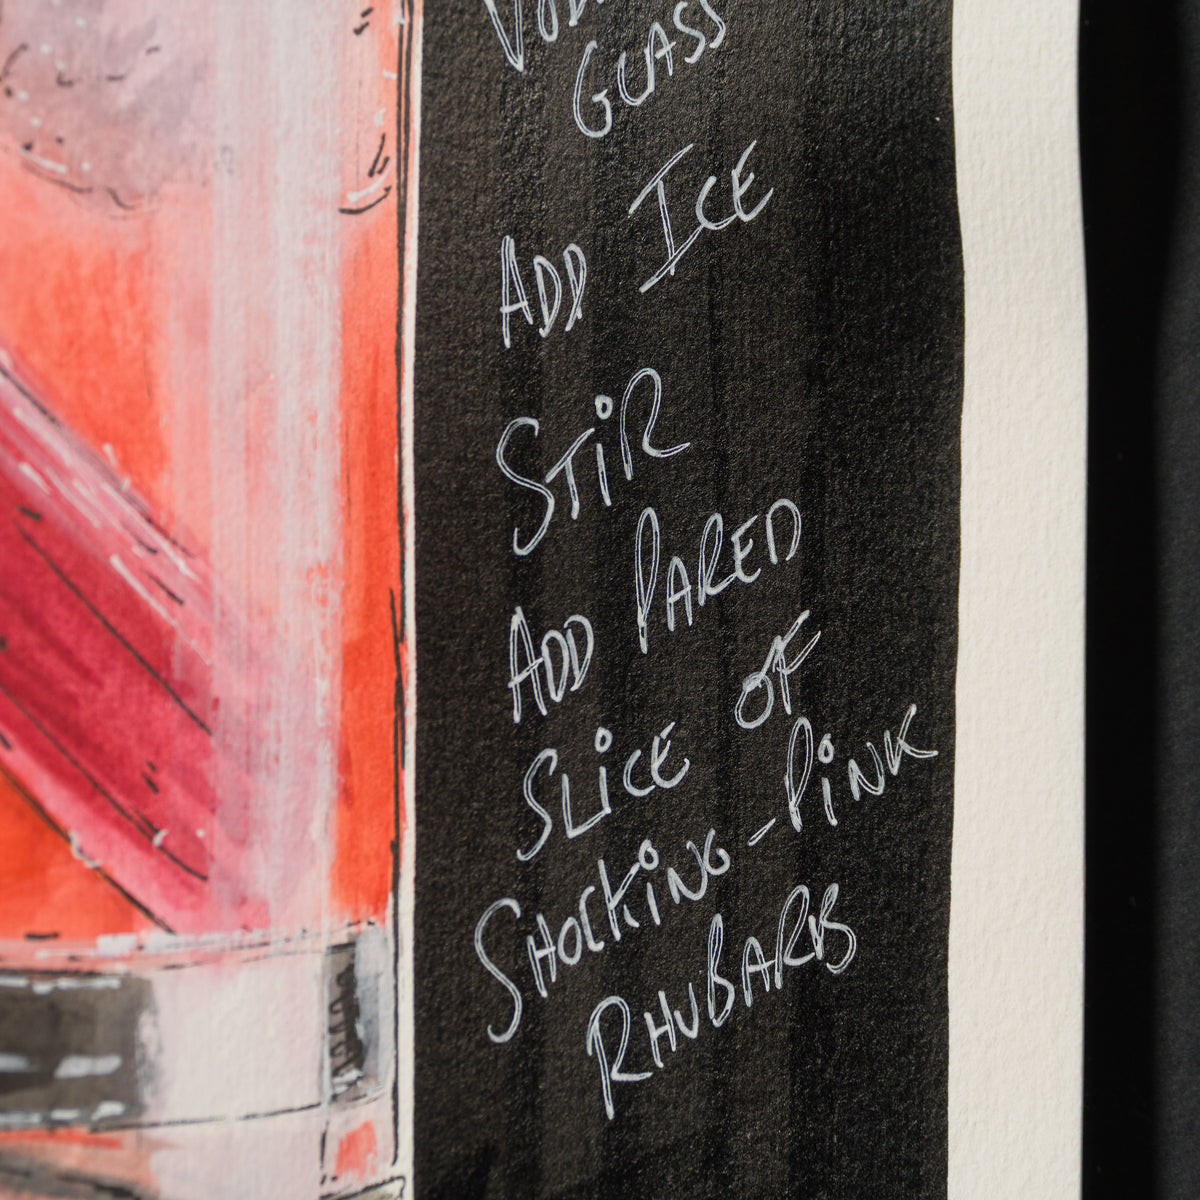 GLASS
ADD ICE
STIR
ADD PARED
SLICE OF
SHOCKING-PINK
RHUBARB